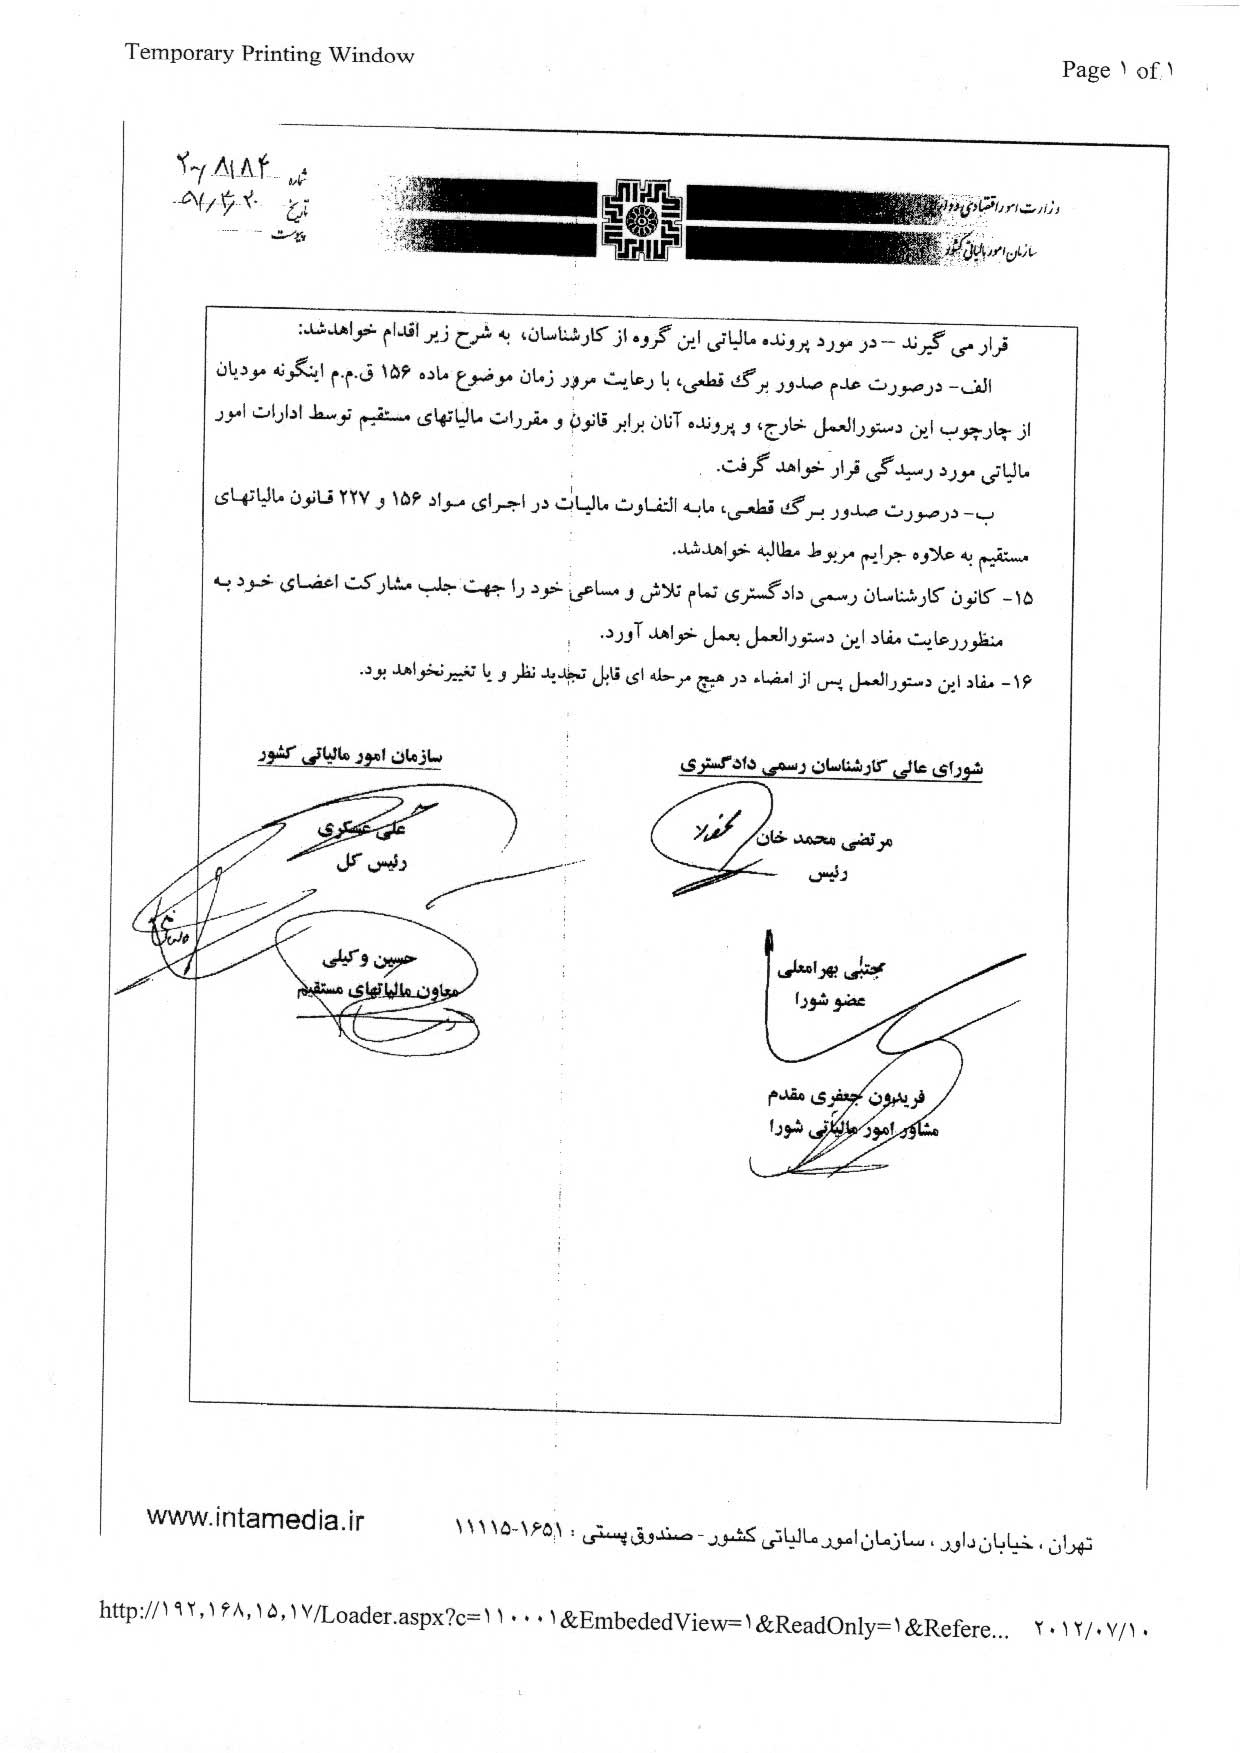 Temporary Printing Window
Page ۱ of ۱
شماره
تاریخ
پیوست
وزارت امور اقتصادی و
سازمان امور مالیاتی کشور
قرار می گیرند – در مورد پرونده مالیاتی این گروه از کارشناسان، به شرح زیر اقدام خواهدشد:
الف- درصورت عدم صدور برگ قطعی، با رعایت مرور زمان موضوع ماده ۱۵۶ ق.م.م اینگونه مودیان
از چارچوب این دستورالعمل خارج، و پرونده آنان برابر قانون و مقررات مالیاتهای مستقیم توسط ادارات امور
مالیاتی مورد رسیدگی قرار خواهد گرفت.
ب- درصورت صدور برگ قطعی، مابه التفاوت مالیات در اجرای مواد ۱۵۶ و ۲۲۷ قانون مالیاتهای
مستقیم به علاوه جرایم مربوط مطالبه خواهدشد.
۱۵- کانون کارشناسان رسمی دادگستری تمام تلاش و مساعی خود را جهت جلب مشارکت اعضای خود به
منظوررعایت مفاد این دستورالعمل بعمل خواهد آورد.
۱۶- مفاد این دستورالعمل پس از امضاء در هیچ مرحله ای قابل تجدید نظر و یا تغییرنخواهد بود.
شورای عالی کارشناسان رسمی دادگستری
سازمان امور مالیاتی کشور
مرتضی محمد خان
رئیس
علی عسکری
رئیس کل
مجتبی بهرامعلی
عضو شورا
حسین وکیلی
معاون مالیاتهای مستقیم
فریدون جعفری مقدم
مشاور امور مالیاتی شورا
www.intamedia.ir
تهران ، خیابان داور ، سازمان امور مالیاتی کشور - صندوق پستی : ۱۶۵۱-۱۱۱۱۵
http://۱۹۲,۱۶۸,۱۵,۱۷/Loader.aspx?c=۱۱۰۰۰۱&EmbededView=۱&ReadOnly=۱&Refere... ۲۰۱۲/۰۷/۱۰